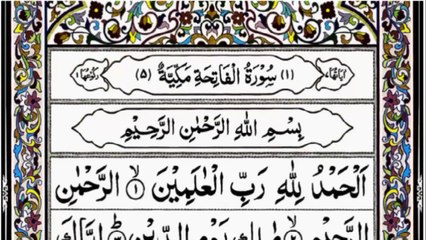 اٰیَاتُهَا ۷ (۱) سُوْرَةُ الْفَاتِحَةِ مَكِّیَّةٌ (۵) رُكُوْعُهَا ۱
بِسْمِ اللهِ الرَّحْمٰنِ الرَّحِیْمِ
اَلْحَمْدُ لِلّٰهِ رَبِّ الْعٰلَمِیْنَ ۙ﴿۱﴾ الرَّحْمٰنِ
الرَّحِیْمِ ۙ﴿۲﴾ مٰلِكِ یَوْمِ الدِّیْنِ ؕ﴿۳﴾ اِیَّاكَ